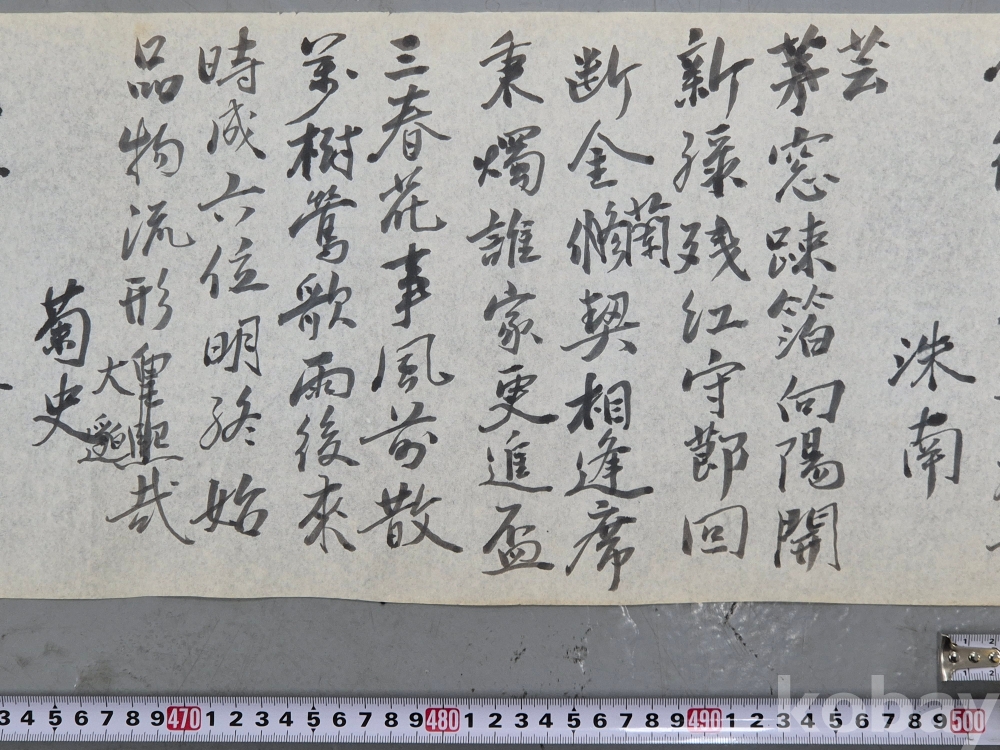 洙南
芸
茅窓踈箔向陽開
新緑残紅守節回
断金脩契相逢席
蘭
秉燭誰家更進盃
三春花事風前散
萬樹鶯歌雨後來
時成六位明終始
品物流形
熙哉
大
菊史
3 4 5 6 7 8 9 470 1 2 3 4 5 6 7 8 9 480 1 2 3 4 5 6 7 8 9 490 1 2 3 4 5 6 7 8 9 500
kobay